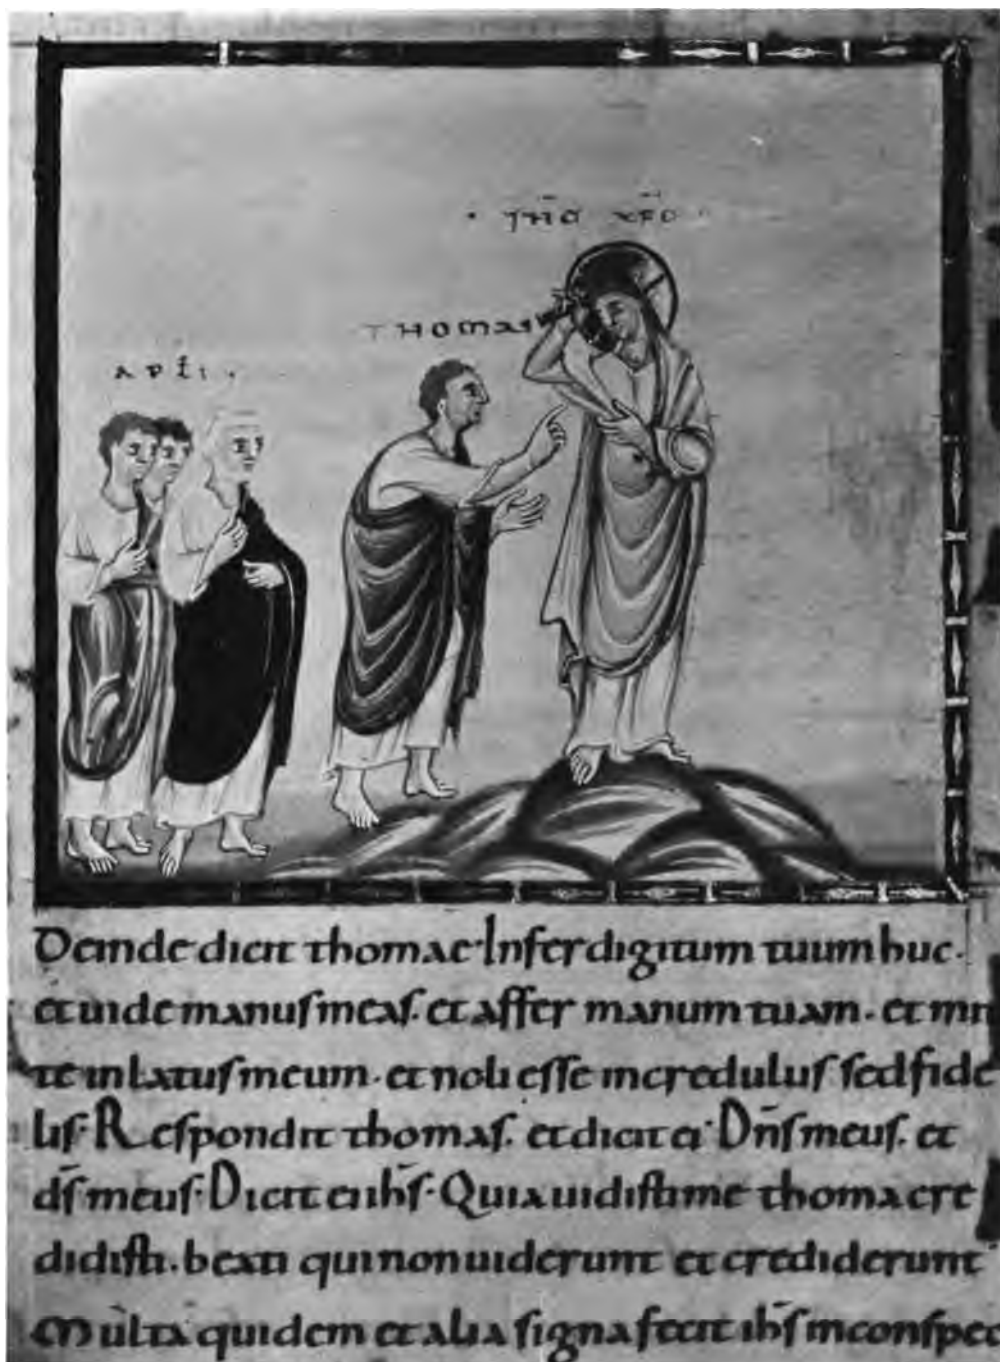 · IH̄C XP̄C ·
THOMAS
APL̄I ·
Deinde dicit thomae· Infer digitum tuum huc·
et uide manus meas· et affer manum tuam· et mit
te in latus meum· et noli esse incredulus sed fide
lis· Respondit thomas· et dicit ei· Dn̄s meus· et
ds̄ meus· Dicit ei ih̄s· Quia uidisti me thoma cre
didisti· beati qui non uiderunt et crediderunt
Multa quidem et alia signa fecit ih̄s in conspec